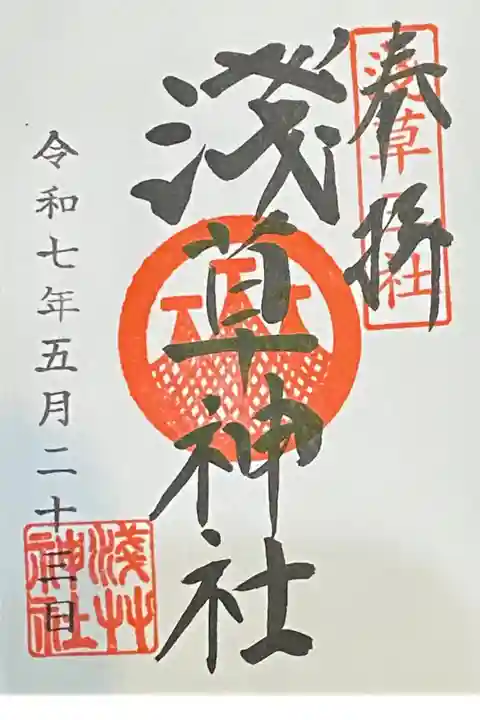 奉拝
浅草神社
淺草神社
令和七年五月二十三日
淺草神社